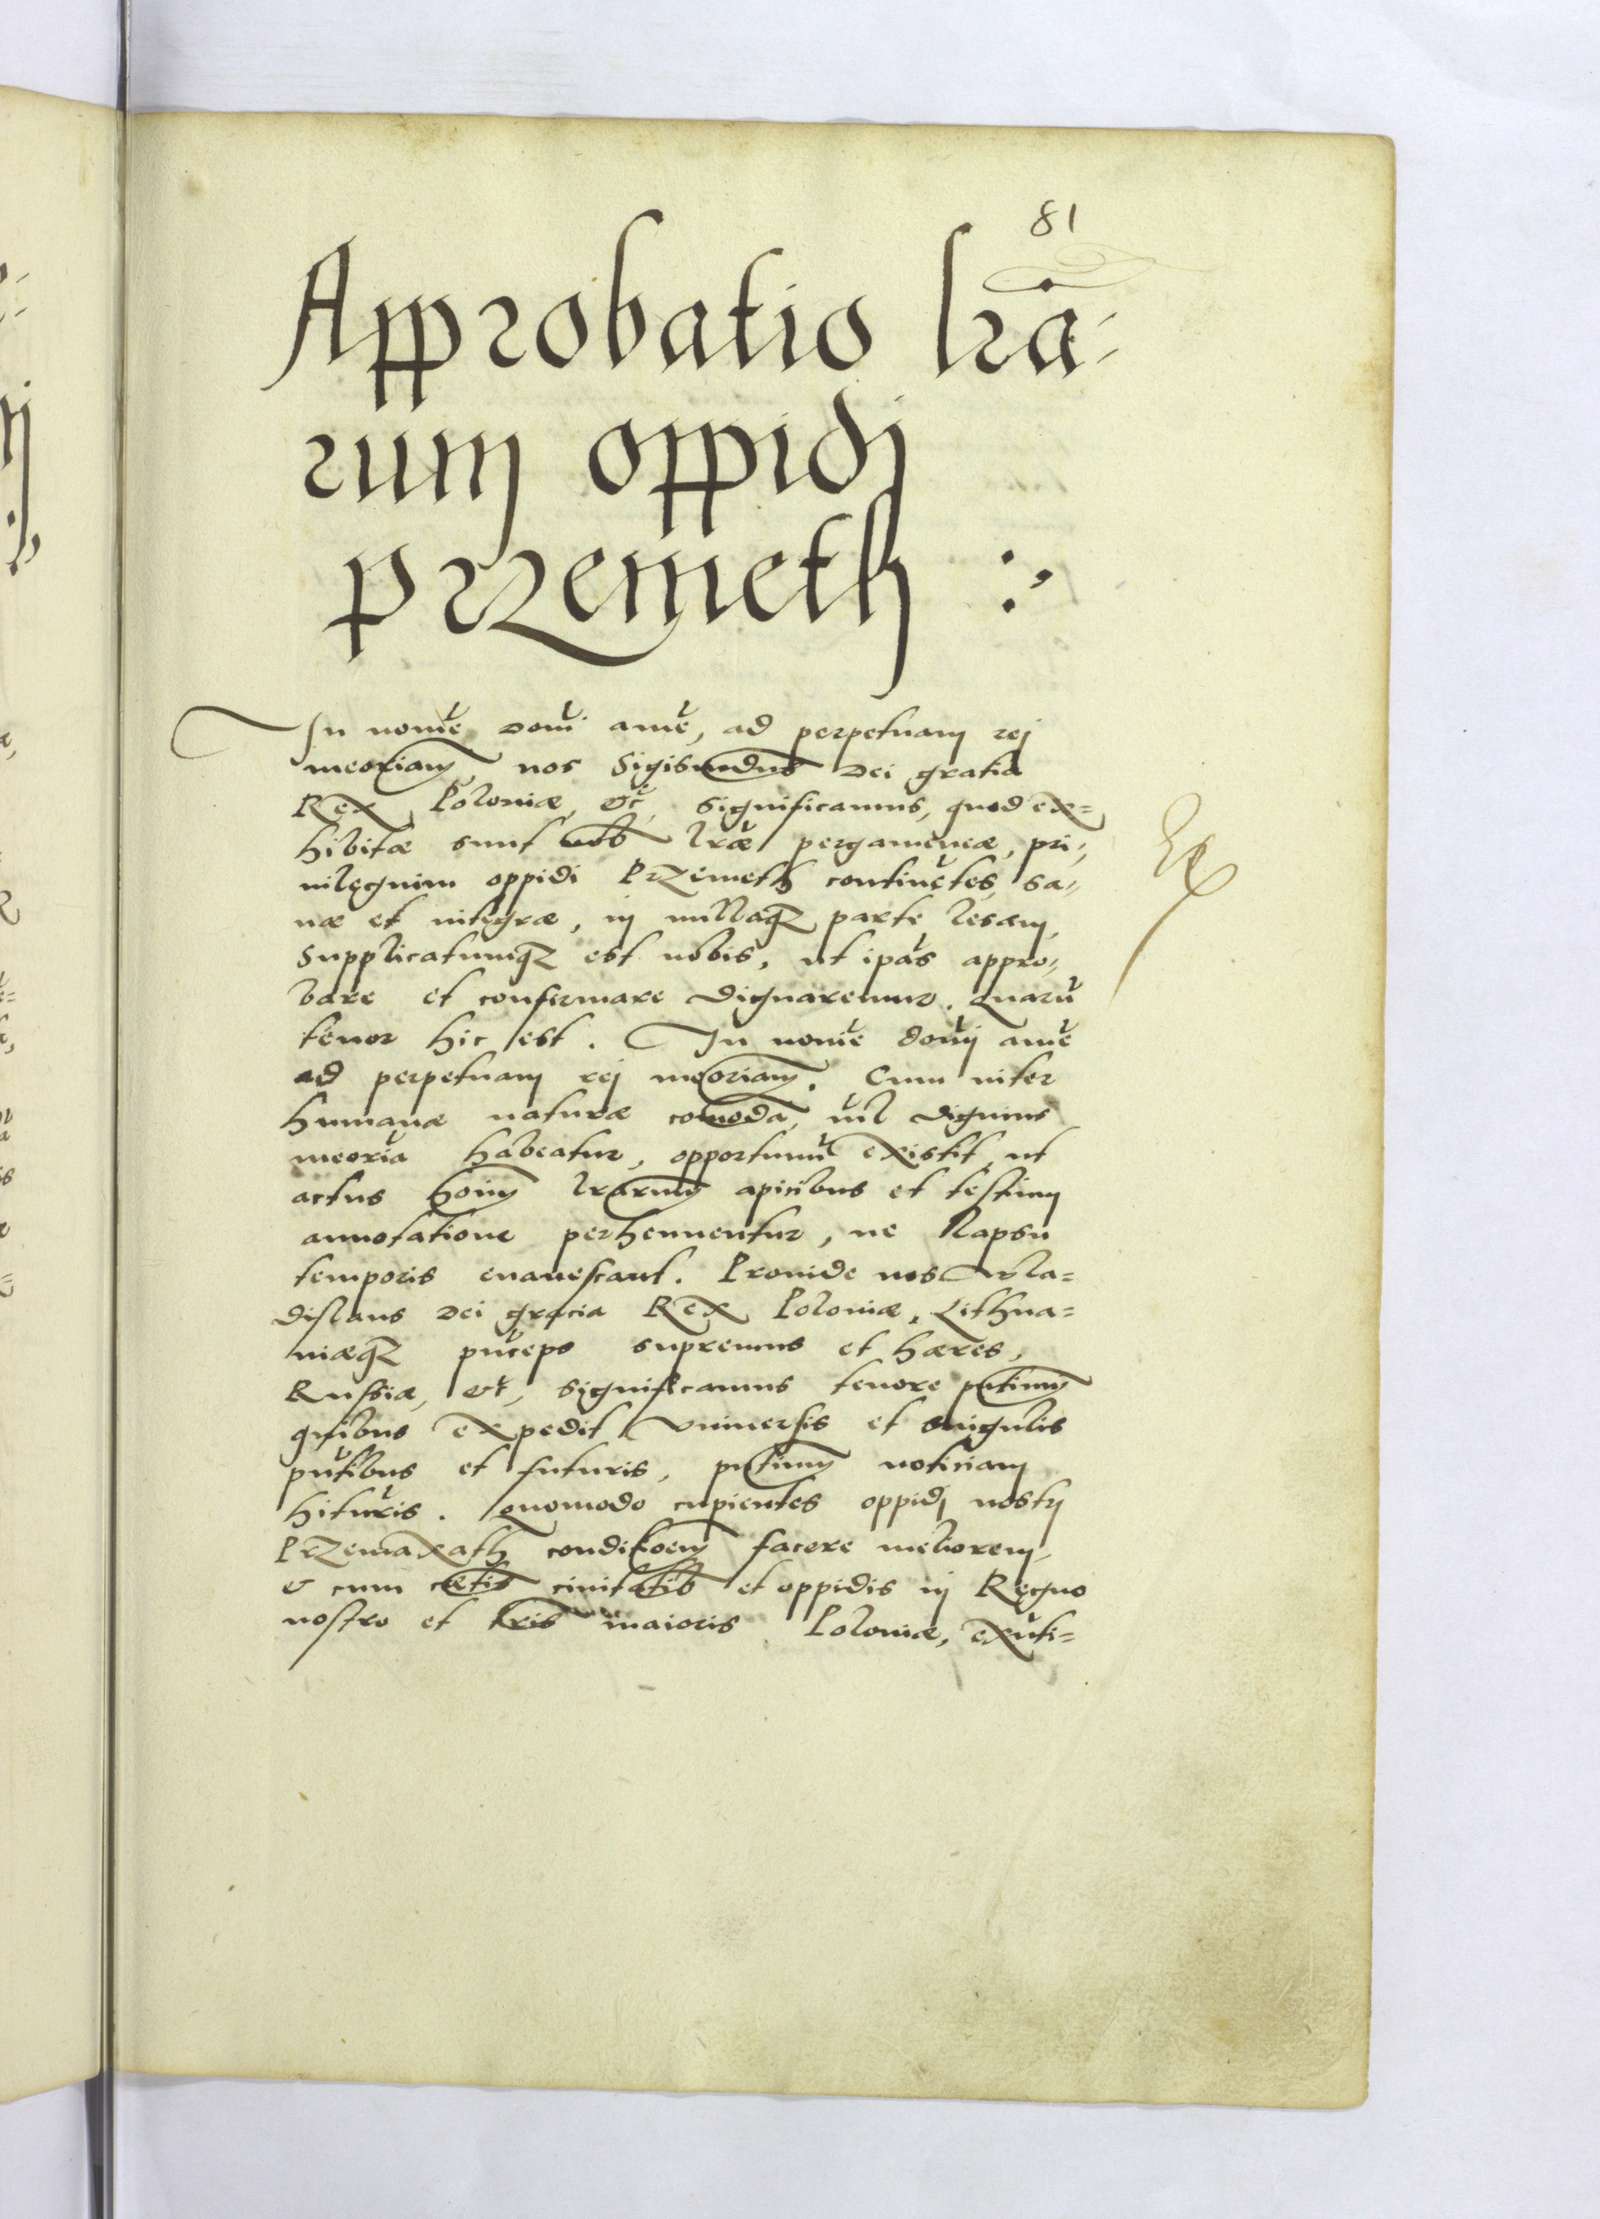 81
Approbatio lrã-
rum oppidj
Przemeth :,
In noĩe Domĩ amẽ, ad perpetuam rej
meoriam, nos Sigismundus Dei gratia
Rex Poloniæ, etc̃, significamus, quod ex=
hibitæ sunt nob lræ pergameneæ, pri-,
uilegium oppidi Przemeth continẽtes, sa-,
næ et integræ, in nullaqz parte lesam,
Supplicatumqz est nobis, ut ipãs appro-,
bare et confirmare dignaremur. Quarũ
tenor hic est. In noĩe domĩ amẽ
ad perpetuam rej meoriam. Cum inter
humanæ naturæ comoda, nil dignius
meoria habeatur, opportunũ existit, ut
actus hoĩm lrarum apicibus et testium
annotatione perhennentur, ne llapsu
temporis euanescant. Proinde nos Wla=
dislaus Dei gracia Rex Poloniæ, Lithua=
niæqz prĩceps supremus et hæres,
Russiæ, etc̃, significamus tenore pñtium
quibus expedit vniuersis et singulis
pñtibus et futuris, pñtium noticiam
hĩturis. Quomodo cupientes oppidj nostrj
Przemaxath conditioem facere meliorem,
& cum cætis ciuitatib et oppidis in Regno
nostro et tris maioris Poloniæ, exñti=
Ex